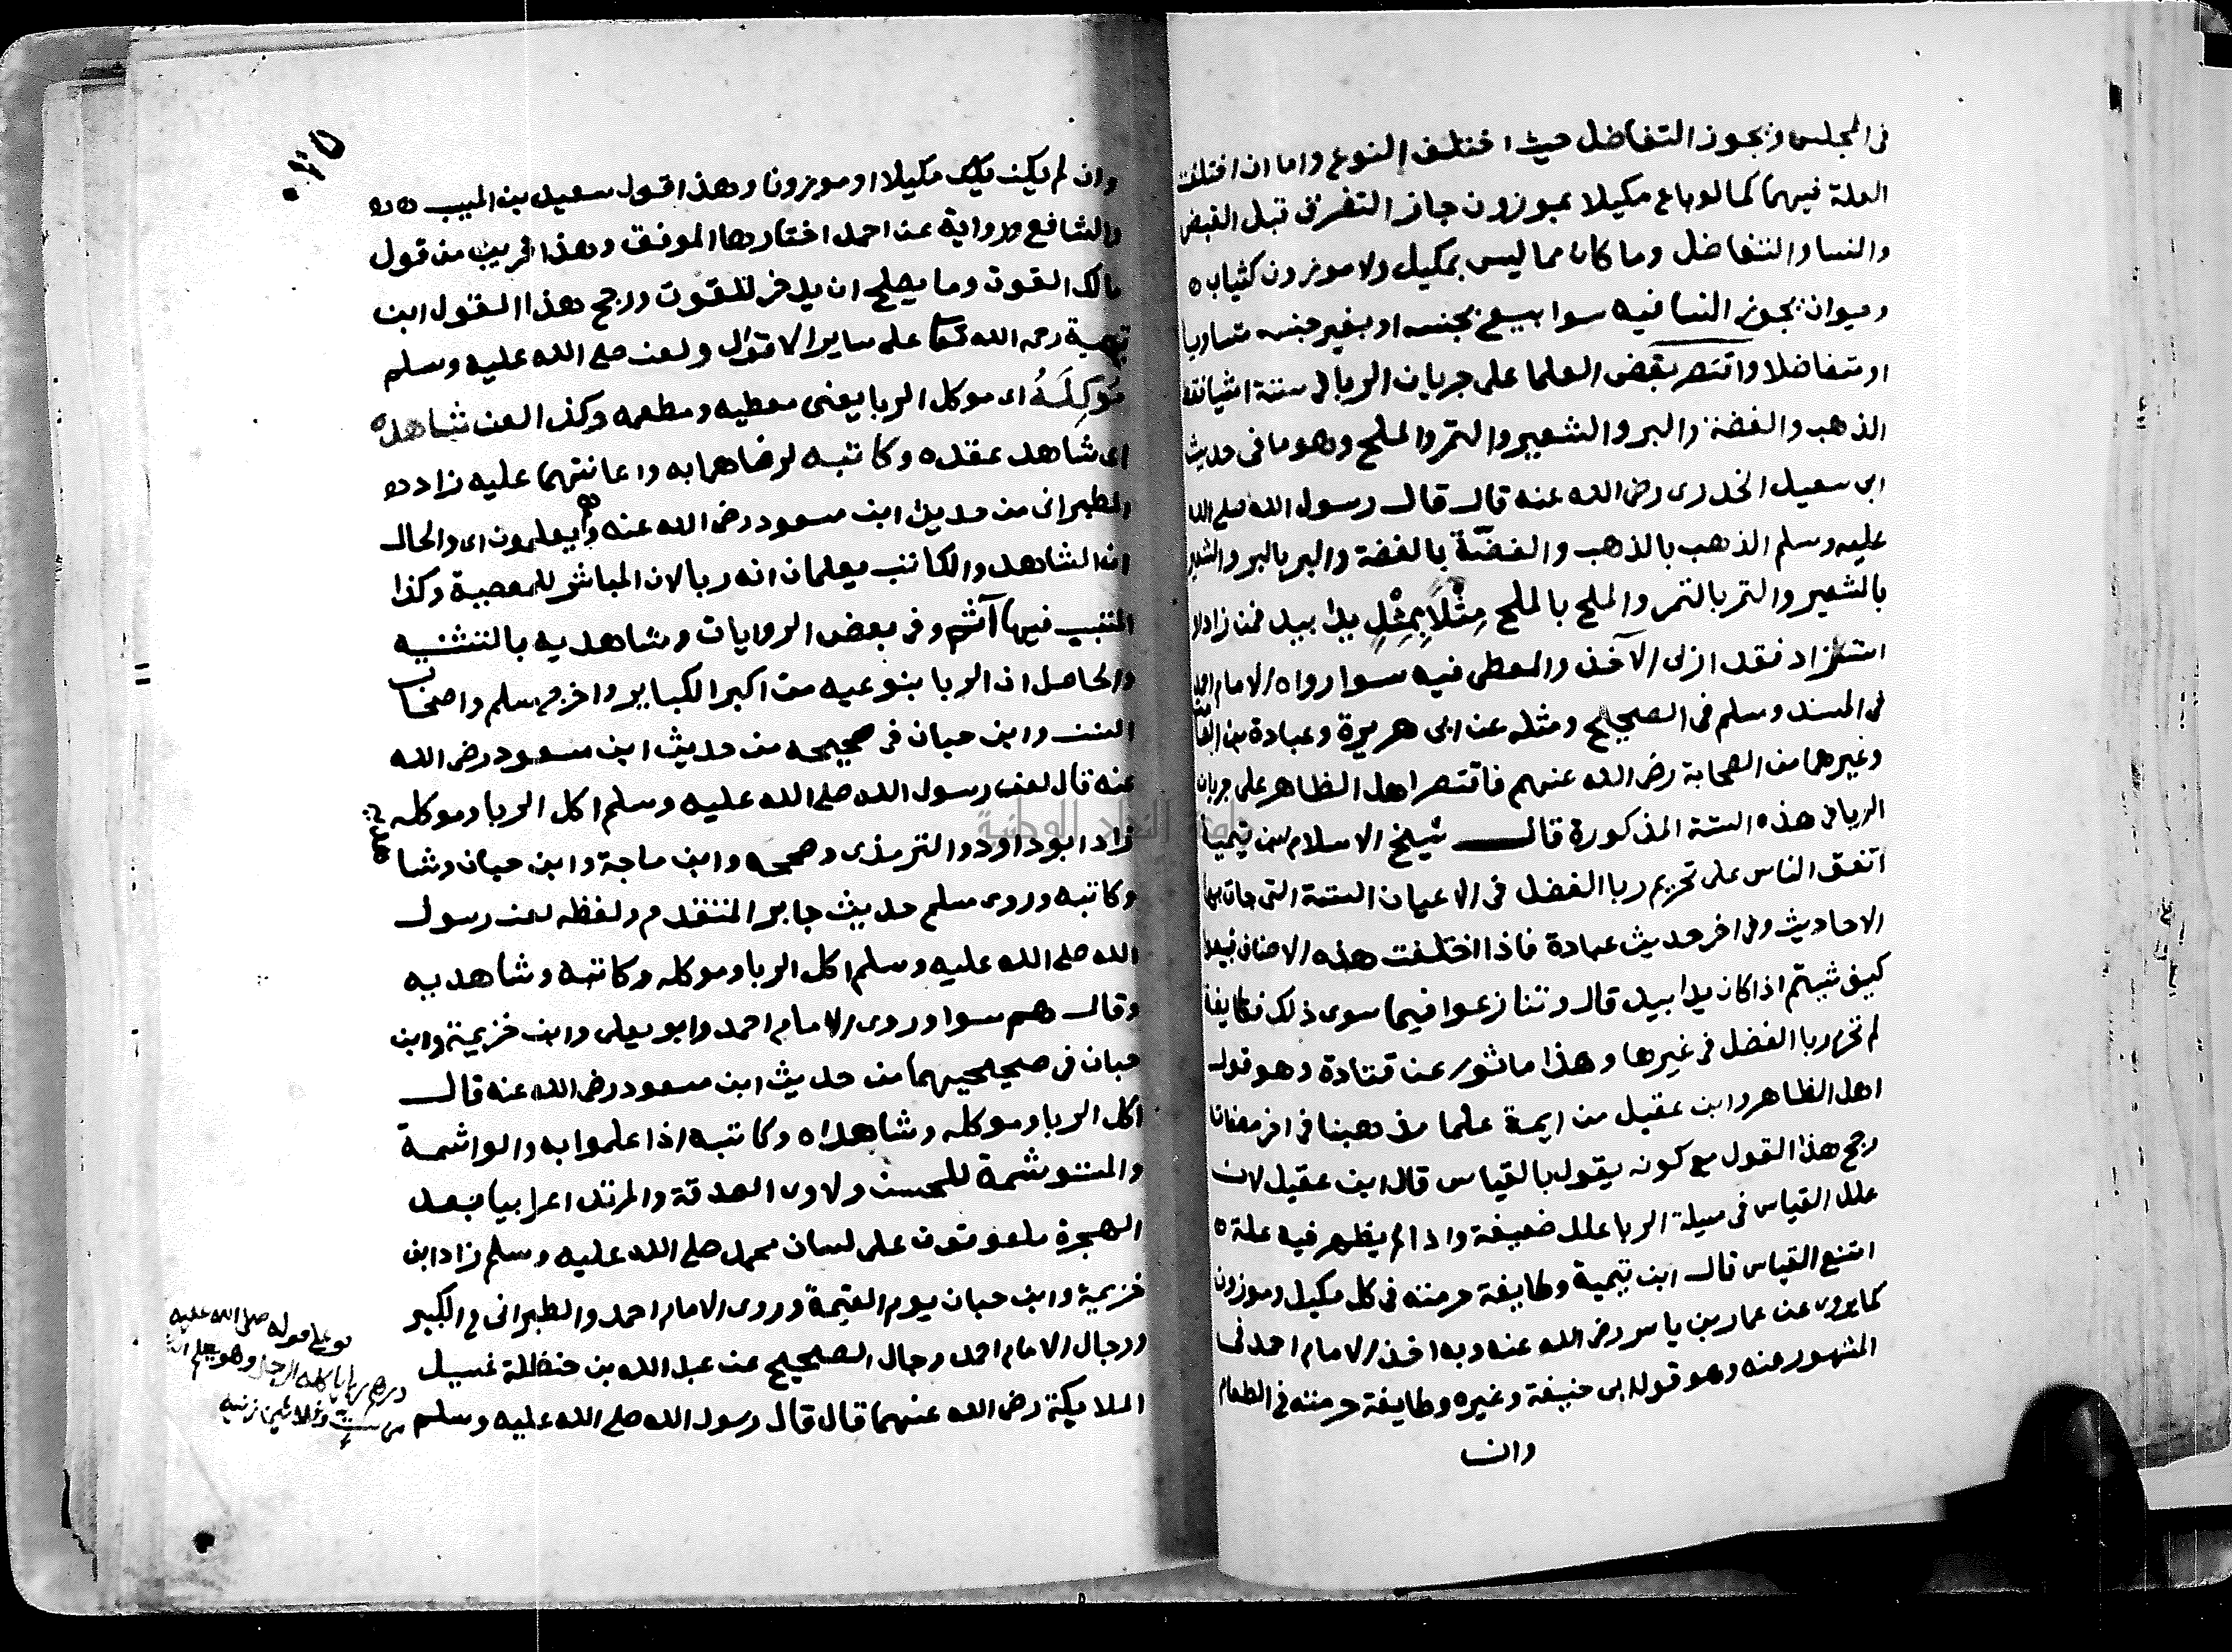 في المجلس ويجوز التفاضل حيث اختلف النوع واما ان اختلفت
العلة فيهما كما لو باع مكيلا بموزون جاز التفرق قبل القبض
والنسا والتفاضل وما كان مما ليس بمكيل ولا موزون كثياب ه
وحيوان يجوز النسا فيه سوا بيع بجنسه او بغير جنسه متساويا
او متفاضلا واقتصر بعض العلما على جريان الربا في ستة اشيا فقط
الذهب والفضة والبر والشعير والتمر والملح وهو ما في حديث
ابي سعيد الخدري رضي الله عنه قال قال رسول الله صلى الله
عليه وسلم الذهب بالذهب والفضّة بالفضة والبر بالبر والشعير
بالشعير والتمر بالتمر والملح بالملح مِثْلاً بِمِثْلٍ يدا بيد فمن زاد او
استزاد فقد اربى الآخذ والمعطي فيه سوا رواه الامام احمد
في المسند ومسلم في الصحيح ومثله عن ابي هريرة وعبادة بن الصامت
وغيرهما من الصحابة رضي الله عنهم فاقتصر اهل الظاهر على جريان
الربا في هذه الستة المذكورة قال شيخ الاسلام ابن تيمية
اتفق الناس على تحريم ربا الفضل في الاعيان الستة التي جات بها
الاحاديث وفي اخر حديث عبادة فاذا اختلفت هذه الاصناف فبيعوا
كيف شيتم اذا كان يدا بيد قال وتنازعوا فيما سوى ذلك فطايفة
لم تحرم ربا الفضل في غيرها وهذا ماثور عن قتادة وهو قول
اهل الظاهر وابن عقيل من ايمة علما مذهبنا في اخر مصنفاته
رجح هذا القول مع كونه يقول بالقياس قال ابن عقيل لان
علل القياس في مسيلة الربا علل ضعيفة واذا لم يظهر فيه علة ه
امتنع القياس قال ابن تيمية وطايفة حرمته في كل مكيل وموزون
كما يروى عن عمار بن ياسر رضي الله عنه وبه اخذ الامام احمد في
المشهور عنه وهو قول ابي حنيفة وغيره وطايفة حرمته في الطعام
وان
وان لم يكن مكيلا او موزونا وهذا قول سعيد بن المسيب
والشافعي ورواية عن احمد اختارها الموفق وهذا قريب من قول
مالك القوت وما يصلح ان يدخر للقوت ورجح هذا القول ابن
تيمية رحمه الله تعا على ساير الاقوال ولعن صلى الله عليه وسلم
مُوكِلَهُ اى موكل الربا يعني معطيه ومطعمه وكذا لعن شاهده
اى شاهد عقده وكاتبه لرضاهما به واعانتهما عليه زاد
الطبراني من حديث ابن مسعود رضي الله عنه وهم يعلمون اى والحال
ان الشاهد والكاتب يعلمان انه ربا لان المباشر للمعصية وكذا
المتسبب فيها آثم وفي بعض الروايات وشاهديه بالتثنيه
والحاصل ان الربا بنوعيه من اكبر الكباير واخرج مسلم واصحاب
السنن وابن حبان في صحيحه من حديث ابن مسعود رضي الله
عنه قال لعن رسول الله صلى الله عليه وسلم اكل الربا وموكله
زاد ابو داود والترمذي وصححه وابن ماجة وابن حبان وشا
وكاتبه وروى مسلم حديث جابر المتقدم ولفظه لعن رسول
الله صلى الله عليه وسلم اكل الربا وموكله وكاتبه وشاهديه
وقال هم سوا وروى الامام احمد وابو يعلى وابن خزيمة وابن
حبان في صحيحيهما من حديث ابن مسعود رضي الله عنه قال
اكل الربا وموكله وشاهداه وكاتبه اذا علموا به والواشمة
والمستوشمة للحسن ولاوى الصدقة والمرتد اعرابيا بعد
الهجرة ملعونون على لسان محمد صلى الله عليه وسلم زاد ابن
خزيمة وابن حبان يوم القيمة وروى الامام احمد والطبراني في الكبير
ورجال الامام احمد رجال الصحيح عن عبد الله بن حنظلة غسيل
الملايكة رضي الله عنهما قال قال رسول الله صلى الله عليه وسلم
قوله صلى الله عليه
درهم ربا ياكله الرجل وهو يعلم اشد
من ستة وثلاثين زنيه
جامعة النجاح الوطنية